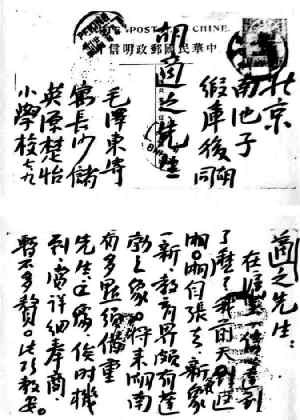 POST CHINE
中華民國郵政明信
北京
南池子
緞庫後胡同
胡適之先生
毛澤東寄
寓長沙儲
英源楚怡
小學校 七九
適之先生：
在滬上一信達到
了麽？我前天返
湘。湘自張去，氣象
一新，教育界頗有蓬
勃之象。將來湖南
有多點須借重
先生，俟時機
到，當詳細奉商，
暫不多贅。此頌教安。